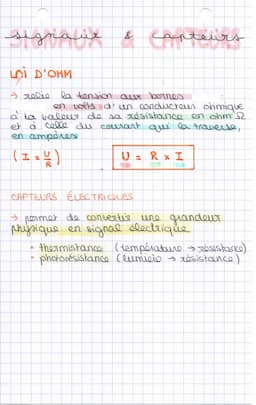 SIGNAUX & CAPTEURS
signaux & capteurs
LOI D'OHM
→ relie la tension aux bornes
en volts d'un conducteur ohmique
à la valeur de sa résistance en ohm Ω
et à celle du courant qui la traverse,
en ampères
(I = U/R) U = R × I
CAPTEURS ÉLECTRIQUES
→ permet de convertir une grandeur
physique en signal électrique
• thermistance (température → résistance)
• photorésistance (lumière → résistance)